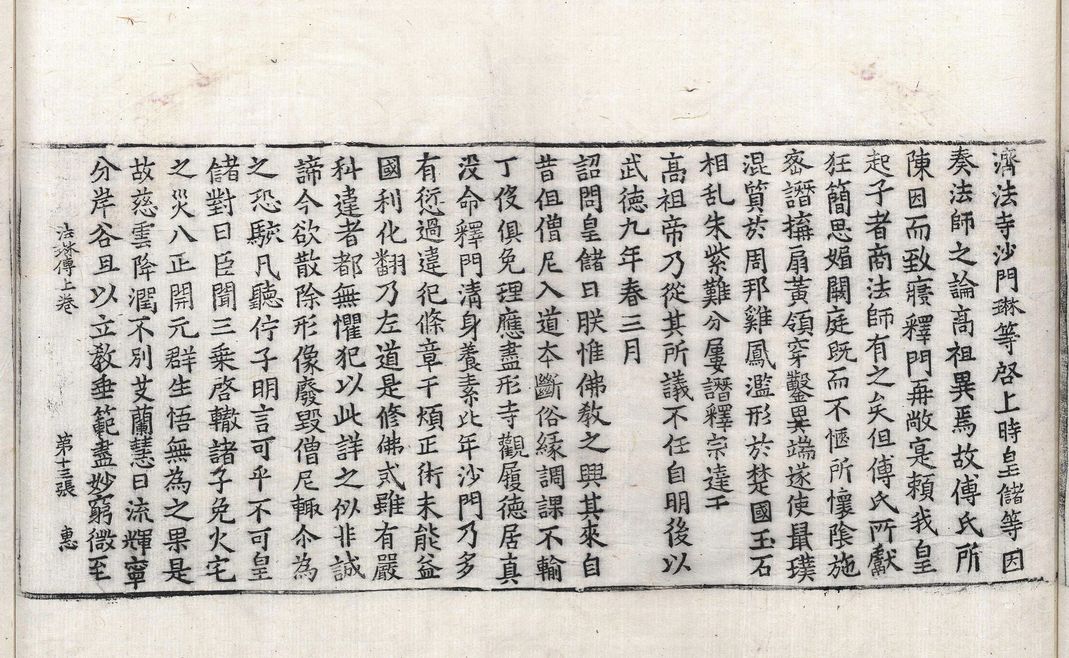 濟法寺沙門琳等啓上時皇儲等因
奏法師之論高祖異焉故傅氏所
陳因而致寢釋門再敞寔頼我皇
起予者商法師有之矣但傅氏所獻
狂簡思媚闕庭既而不愜所懷陰施
密譖搆扇黃領穿鑿異端遂使鼠璞
混質於周邦雞鳳濫形於楚國玉石
相乱朱紫難分屢譖釋宗達于
高祖帝乃從其所議不任自明後以
武德九年春三月
詔問皇儲曰朕惟佛教之興其來自
昔但僧尼入道本斷俗緣調課不輸
丁伇俱免理應盡形寺觀履德居真
没命釋門清身養素比年沙門乃多
有愆過違犯條章干煩正術未能益
國利化翻乃左道是修佛戒雖有嚴
科違者都無懼犯以此詳之似非誠
諦今欲散除形像廢毀僧尼輒尒為
之恐駭凡聽佇子明言可乎不可皇
儲對曰臣聞三乗啓轍諸子免火宅
之災八正開元群生悟無為之果是
故慈雲降潤不別艾蘭慧日流輝寧
分岸谷且以立教垂範盡妙窮微至
法琳傳上卷 第十三張 惠